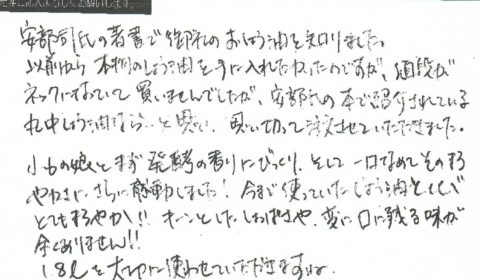 元本に記入よろしくお願いします。
安部司氏の著書で御社のおしょう油を知りました。
以前から本物のしょう油を手に入れたかったのですが、値段が
ネックになっていて買いませんでしたが、安部氏の本で紹介されている
しょう油なら…と思い、思い切って注文させていただきました。
小6の娘とまず発酵の香りにびっくり、そして一口なめてそのまろ
やかさにさらに感動しました！今まで使っていたしょう油とくらべ
とてもまろやか!!キーンとしたしょっぱさや、変に口に残る味が
全くありません!!
1.8Lを大切に使わせていただきますね。